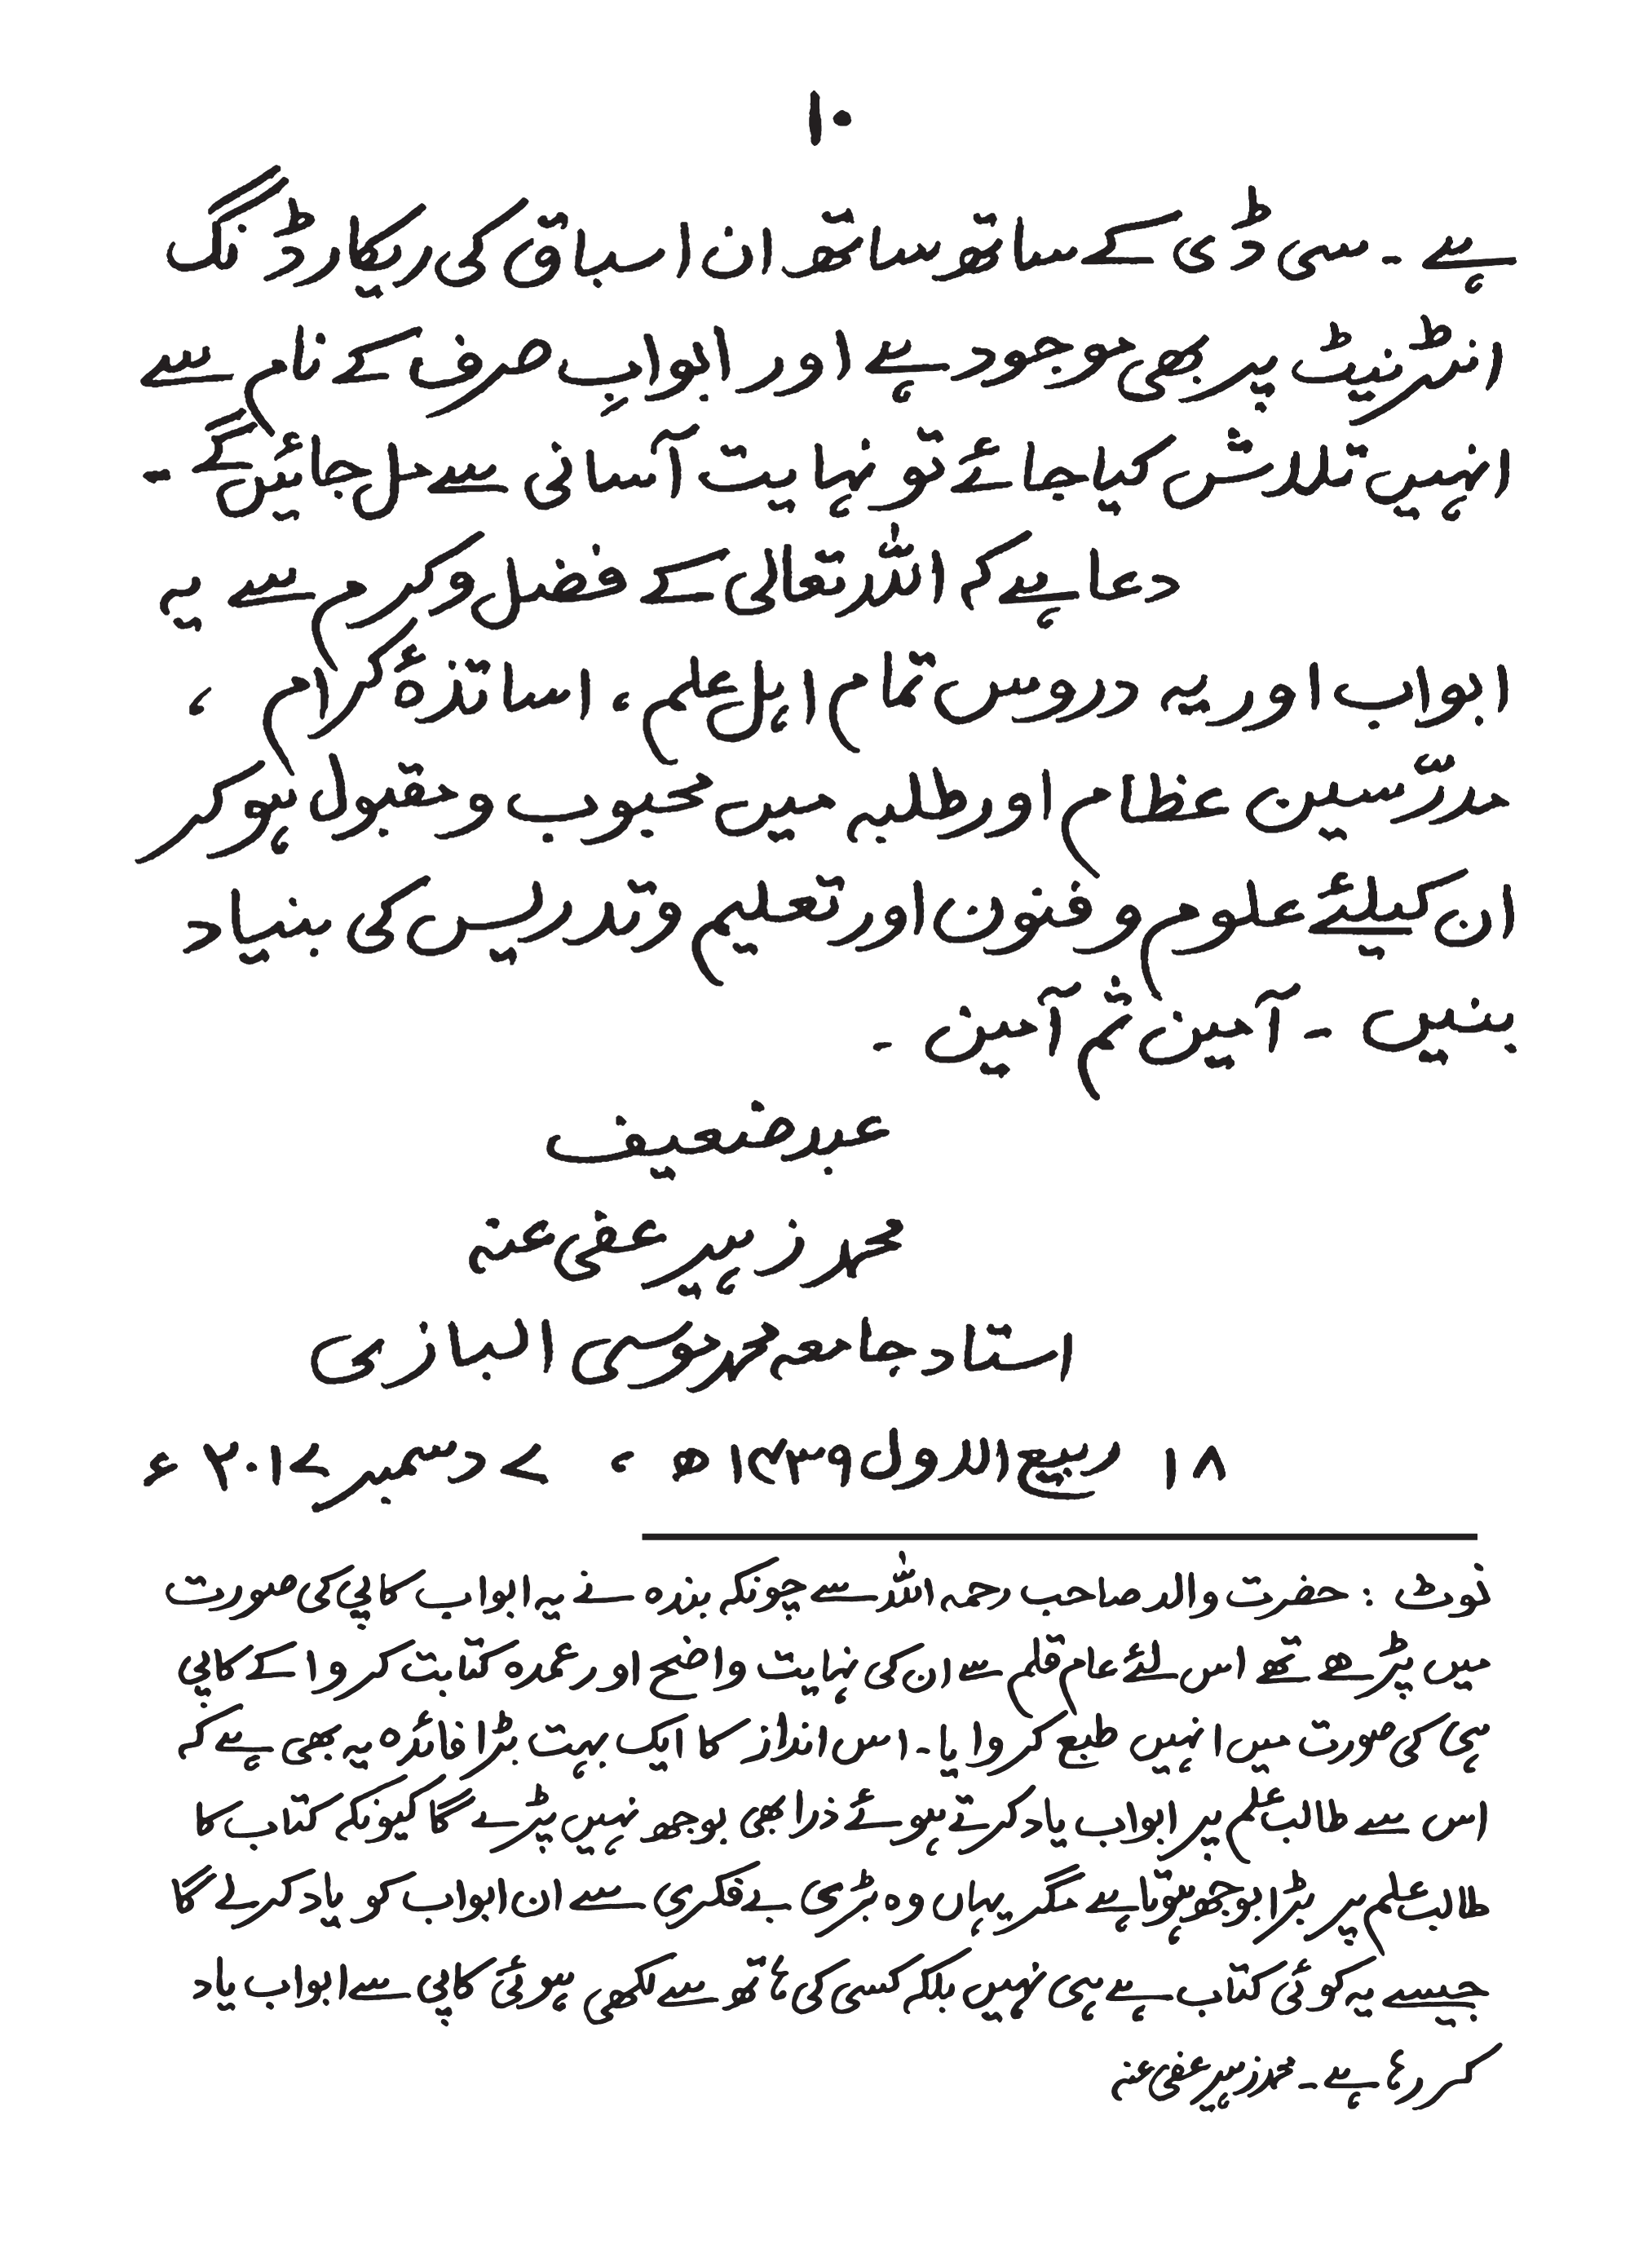 ۱۰
ہے ۔ سی ڈی کے ساتھ ساتھ ان اسباق کی ریکارڈنگ
انٹرنیٹ پر بھی موجود ہے اور ابوابِ صرف کے نام سے
انہیں تلاش کیا جائے تو نہایت آسانی سے مل جائیں گے ۔
دعا ہے کہ اللہ تعالی کے فضل و کرم سے یہ
ابواب اور یہ دروس تمام اہل علم ، اساتذۂ کرام ،
مدرّسین عظام اور طلبہ میں محبوب و مقبول ہو کر
ان کیلئے علوم و فنون اور تعلیم و تدریس کی بنیاد
بنیں ۔ آمین ثم آمین ۔
عبد ضعیف
محمد زہیر عفی عنہ
استاد جامعہ محمد موسی البازی
۱۸ ربیع الاول ۱۴۳۹ ھ ، ۷ دسمبر ۲۰۱۷ ء
نوٹ : حضرت والد صاحب رحمہ اللہ سے چونکہ بندہ نے یہ ابواب کاپی کی صورت
میں پڑھے تھے اس لئے عام قلم سے ان کی نہایت واضح اور عمدہ کتابت کروا کے کاپی
ہی کی صورت میں انہیں طبع کروایا ۔ اس انداز کا ایک بہت بڑا فائدہ یہ بھی ہے کہ
اس سے طالب علم پر ابواب یاد کرتے ہوئے ذرا بھی بوجھ نہیں پڑے گا کیونکہ کتاب کا
طالب علم پر بڑا بوجھ ہوتا ہے مگر یہاں وہ بڑی بے فکری سے ان ابواب کو یاد کر لے گا
جیسے یہ کوئی کتاب ہے ہی نہیں بلکہ کسی کی ہاتھ سے لکھی ہوئی کاپی سے ابواب یاد
کر رہا ہے ۔ محمد زہیر عفی عنہ